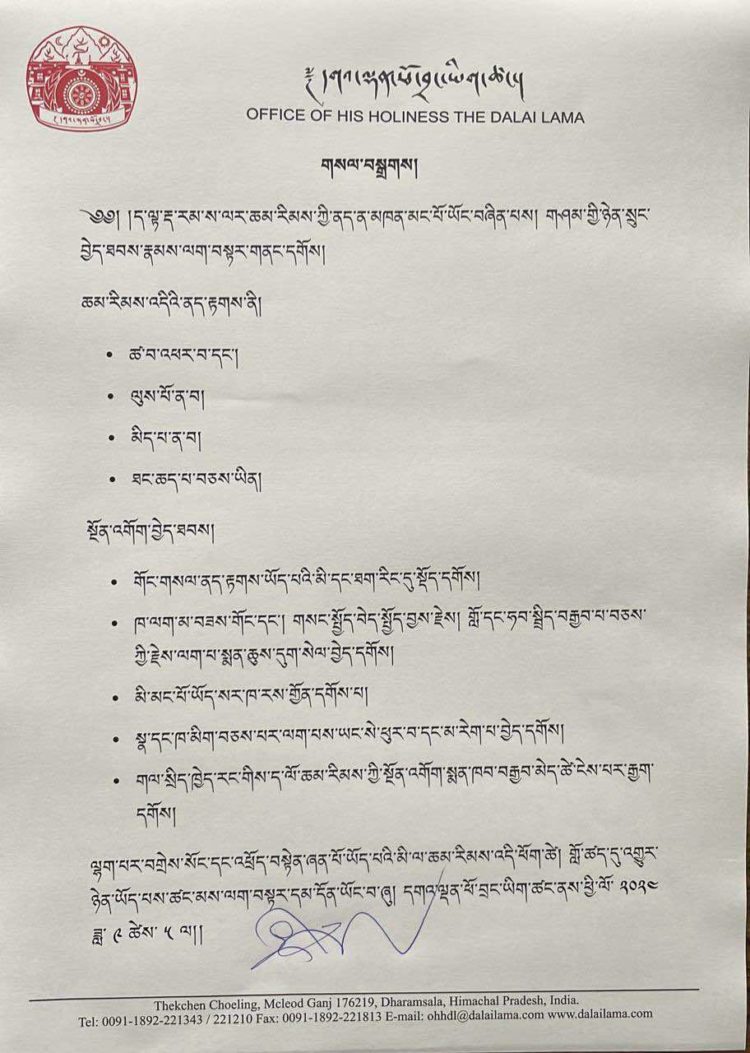 ༄༅། །དགའ་ལྡན་ཕོ་བྲང་ཡིག་ཚང་།
OFFICE OF HIS HOLINESS THE DALAI LAMA
གསལ་བསྒྲགས།
༄༅། །ད་ལྟ་རྡ་རམ་ས་ལར་ཆམ་རིམས་ཀྱི་ནད་ན་མཁན་མང་པོ་ཡོང་བཞིན་པས། གཤམ་གྱི་ཉེན་སྲུང་
བྱེད་ཐབས་རྣམས་ལག་བསྟར་གནང་དགོས།
ཆམ་རིམས་འདིའི་ནད་རྟགས་ནི།
• ཚ་བ་འཕར་བ་དང་།
• ལུས་པོ་ན་བ།
• མིད་པ་ན་བ།
• ཐང་ཆད་པ་བཅས་ཡིན།
སྔོན་འགོག་བྱེད་ཐབས།
• གོང་གསལ་ནད་རྟགས་ཡོད་པའི་མི་དང་ཐག་རིང་དུ་སྡོད་དགོས།
• ཁ་ལག་མ་བཟས་གོང་དང་། གསང་སྤྱོད་བེད་སྤྱོད་བྱས་རྗེས། གློ་དང་ཧབ་སྦྲིད་བརྒྱབ་པ་བཅས་
ཀྱི་རྗེས་ལག་པ་སྨན་ཆུས་དུག་སེལ་བྱེད་དགོས།
• མི་མང་པོ་ཡོད་སར་ཁ་རས་གྱོན་དགོས་པ།
• སྣ་དང་ཁ་མིག་བཅས་པར་ལག་པས་ཡང་སེ་ཕུར་བ་དང་མ་རེག་པ་བྱེད་དགོས།
• གལ་སྲིད་ཁྱེད་རང་གིས་ད་ལོ་ཆམ་རིམས་ཀྱི་སྔོན་འགོག་སྨན་ཁབ་བརྒྱབ་མེད་ཚེ་ངེས་པར་རྒྱག་
དགོས།
ལྷག་པར་བགྲེས་སོང་དང་འཕྲོད་བསྟེན་ཞན་པོ་ཡོད་པའི་མི་ལ་ཆམ་རིམས་འདི་ཕོག་ཚེ། གློ་ཚད་དུ་འགྱུར་
ཉེན་ཡོད་པས་ཚང་མས་ལག་བསྟར་དམ་དོན་ཡོང་བ་ཞུ། དགའ་ལྡན་ཕོ་བྲང་ཡིག་ཚང་ནས་ཕྱི་ལོ་ ༢༠༢༤
ཟླ་ ༩ ཚེས་ ༥ ལ།།
Thekchen Choeling, Mcleod Ganj 176219, Dharamsala, Himachal Pradesh, India.
Tel: 0091-1892-221343 / 221210 Fax: 0091-1892-221813 E-mail: ohhdl@dalailama.com www.dalailama.com